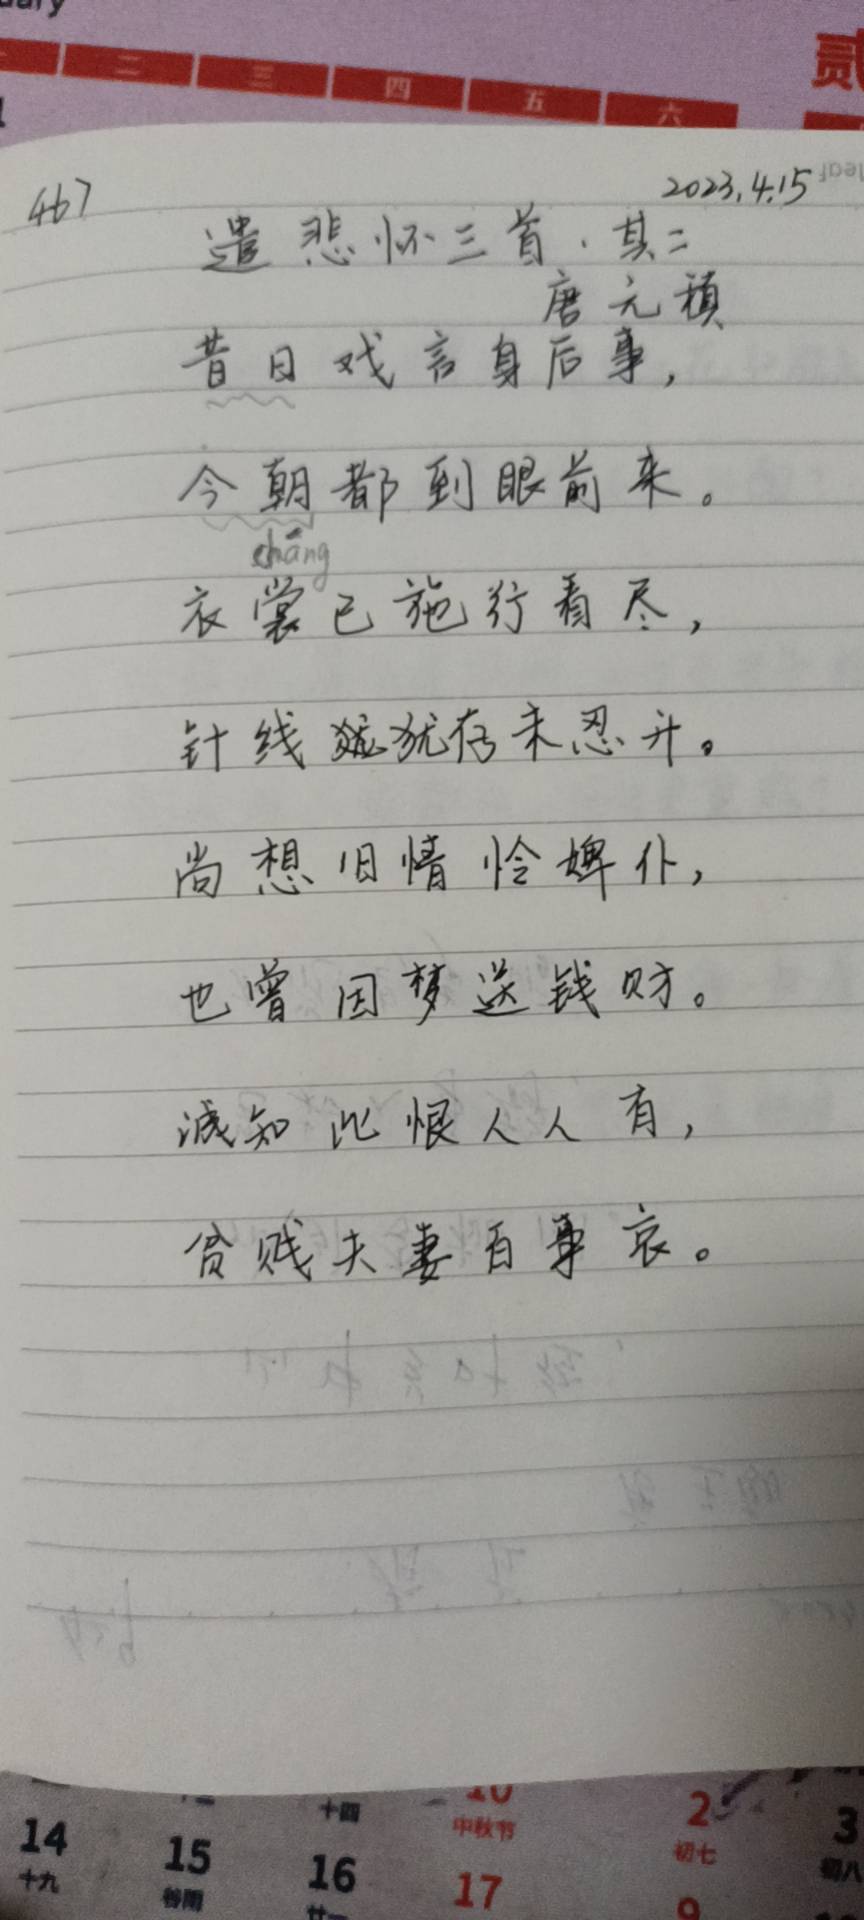 uary
二 三 四 五 六
贰
467
2023.4.15
遣悲怀三首·其二
唐元稹
昔日戏言身后事,
今朝都到眼前来。
cháng
衣裳已施行看尽,
针线犹存未忍开。
尚想旧情怜婢仆,
也曾因梦送钱财。
诚知此恨人人有,
贫贱夫妻百事哀。
十四 10 中秋节 2 初七 3 初八
14 十九 15 谷雨 16 廿一 17 9